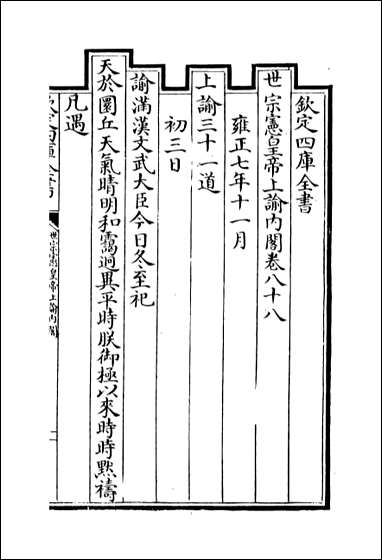 欽定四庫全書
世宗憲皇帝上諭內閣卷八十八
雍正七年十一月
上諭三十一道
初三日
諭滿漢文武大臣今日冬至祀
天於圜丘天氣晴明和靄迥異平時朕御極以來時時默禱
凡遇
世宗憲皇帝上諭內閣